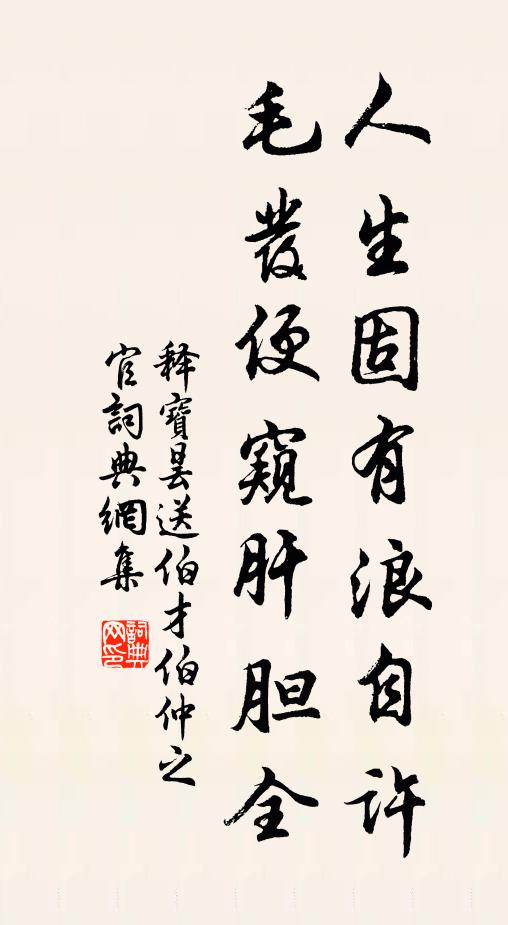 人生固有浪自许
毛發便窺肝胆全
释寶曇送伯才伯仲之
官詞典網集
詞典网印